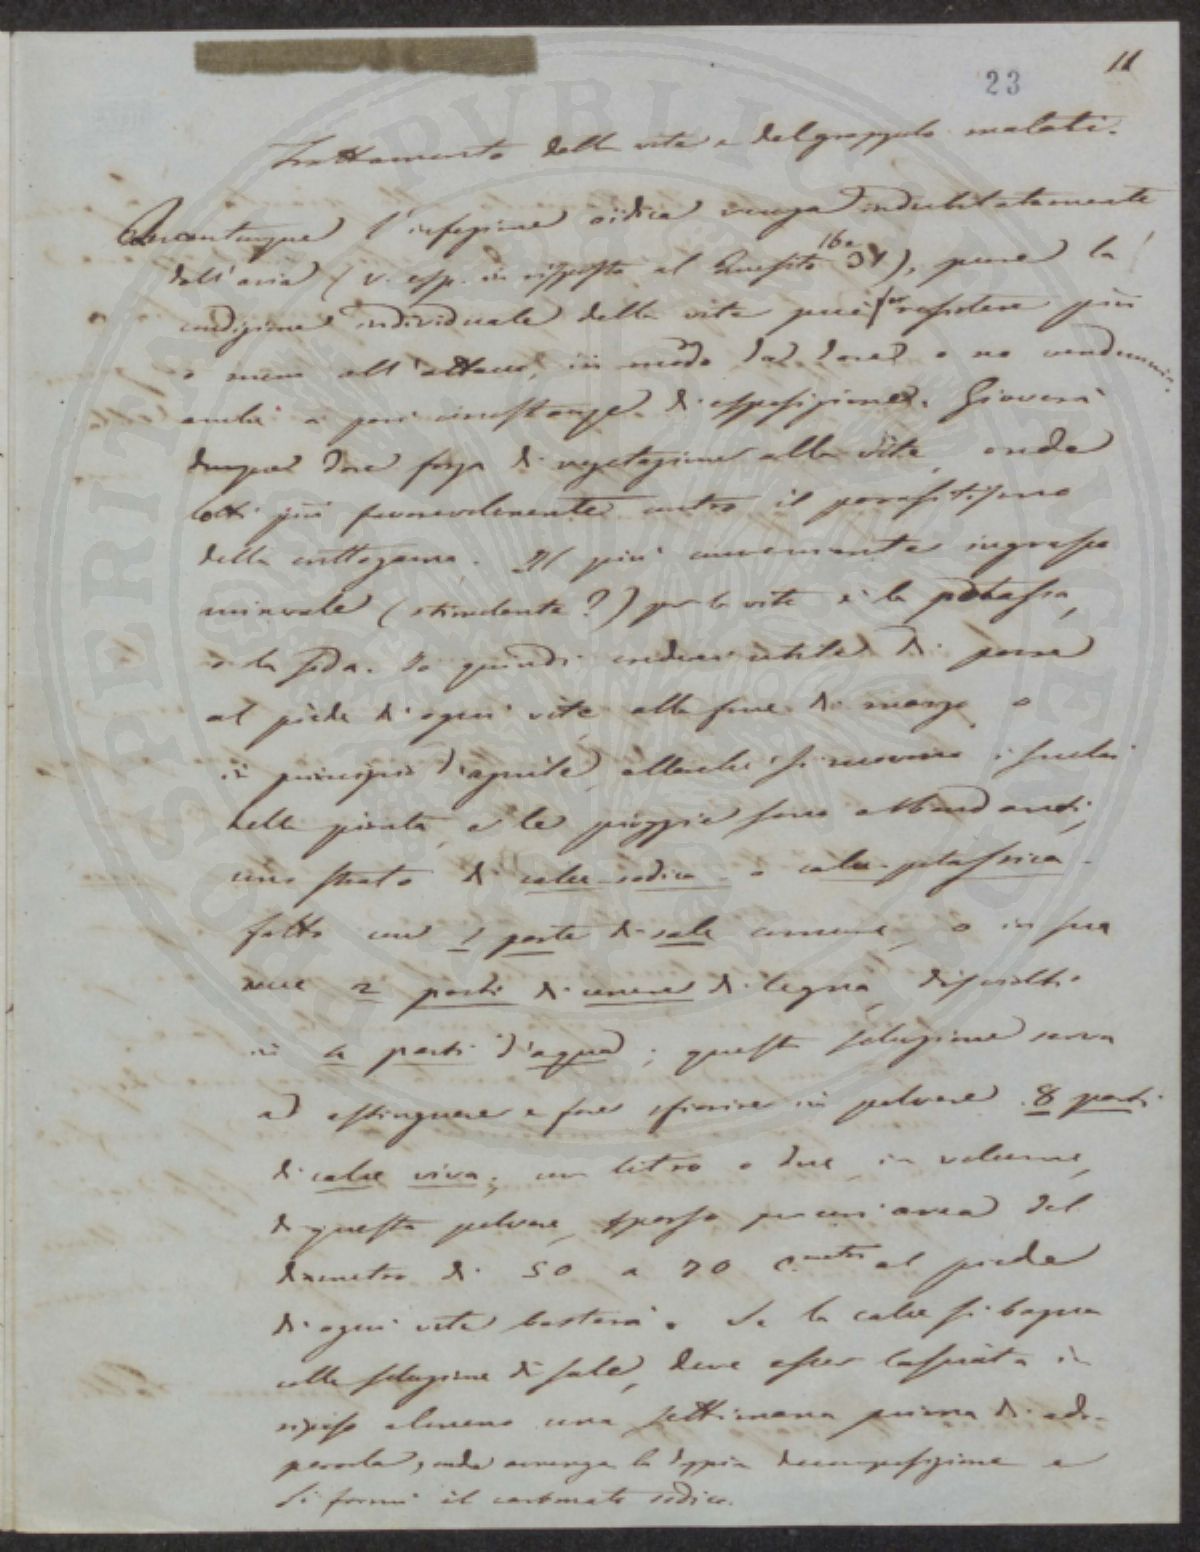 11
23
Trattamento della vite e del grappolo malati.
Quantunque l'infezione oidica venga indubitatamente
dall'aria (v. esp. in risposta al Quesito 16°), pure la
condizione individuale della vite può far resistere più
o meno all'attacco, in modo da dare o no vendemmia,
anche a pari circostanze di esposizione. Gioverà
dunque dare forza di vegetazione alla vite, onde
lotti più favorevolmente contro il parasitismo
della crittogama. Il più conveniente ingrasso
minerale (stimolante?) per la vite è la potassa,
o la soda. Io quindi crederei utile di porre
al piede di ogni vite, alla fine di marzo o
in principio d'aprile, allorchè si muovono i succhi
nella pianta, e le pioggie sono abbondanti,
uno strato di calce-sodica o calce-potassica
fatto con 1 parte di sale comune, o in sua
vece 2 parti di cenere di legna, disciolti
in 4 parti d'acqua; questa soluzione serva
ad estinguere e fare sfiorire in polvere 8 parti
di calce viva; un litro o due, in volume,
di questa polvere, sparso per un'area del
diametro di 50 a 70 C.metri al piede
di ogni vite basterà. Se la calce si bagna
colla soluzione di sale, deve esser lasciata in
riposo almeno una settimana prima di ado-
perarla, onde avvenga la doppia decomposizione e
si formi il carbonato sodico.